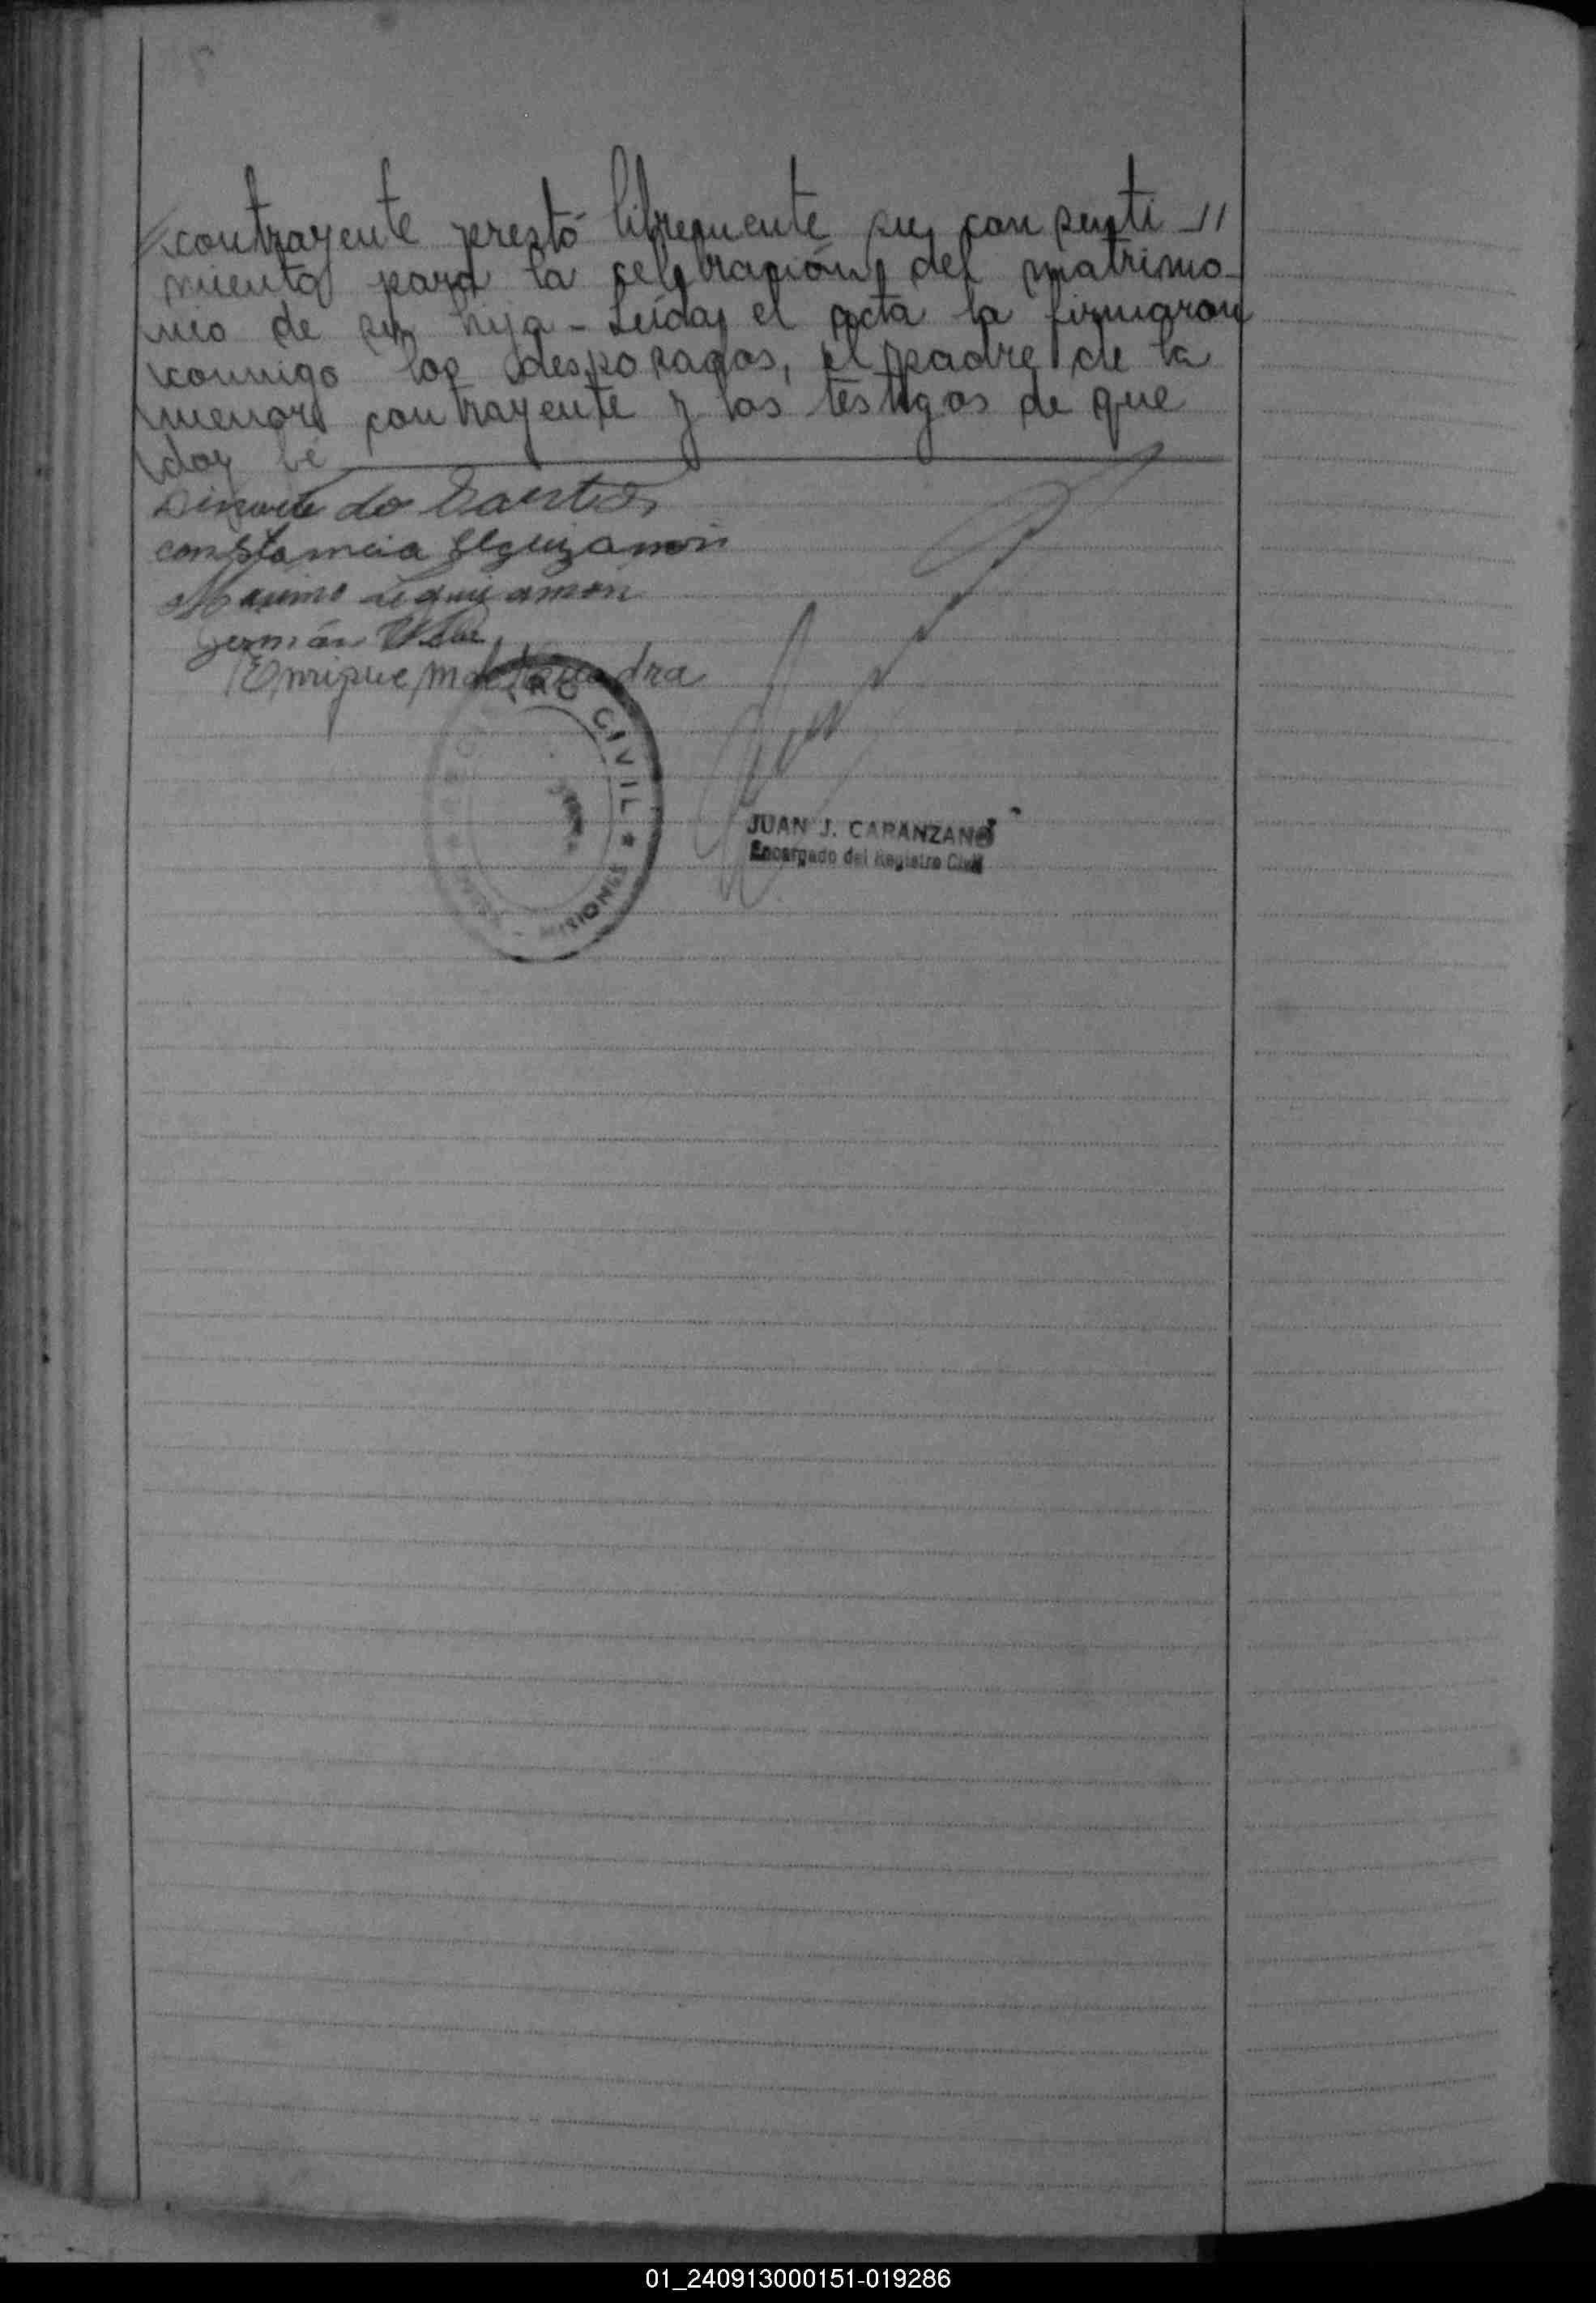 contrayente prestó libremente su consenti-//
miento para la celebración del matrimo-
nio de su hija - Leída el acta la firmaron
conmigo los desposados, el padre de la
menor contrayente y los testigos de que
doy fé
do
constancia leguizamon
Maximo Leguizamon
Germán
Enrique
REGISTRO CIVIL * MISIONES
JUAN J. CARANZANO
Encargado del Registro Civil
01_240913000151-019286